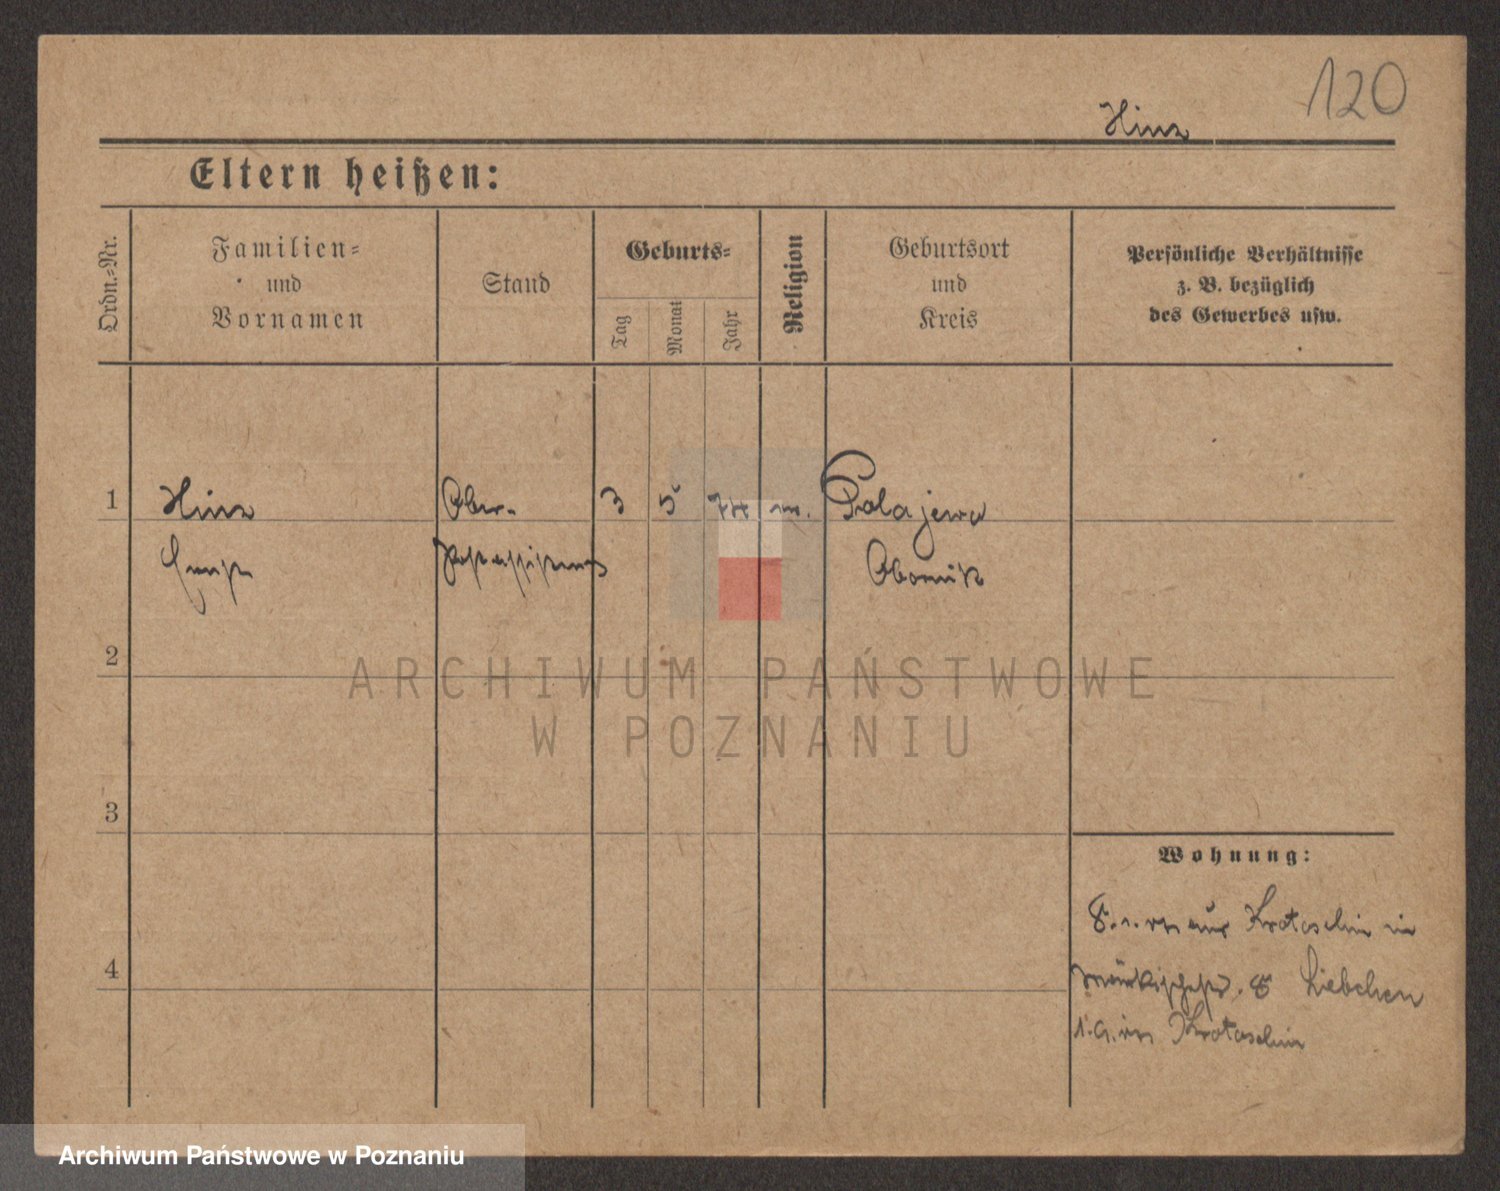 120
Hinz
Eltern heißen:
Ordn.-Nr.
Familien-
und
Vornamen
Stand
Geburts-
Tag
Monat
Jahr
Religion
Geburtsort
und
Kreis
Persönliche Verhältnisse
z. B. bezüglich
des Gewerbes usw.
1 Hinz Ober- 3 5 Polajewo
Ernst Postassistent Obornik
2
ARCHIWUM PAŃSTWOWE
W POZNANIU
3
Wohnung:
aus Krotoschin in
Märkischestr. Liebchen
in Krotoschin
4
Archiwum Państwowe w Poznaniu